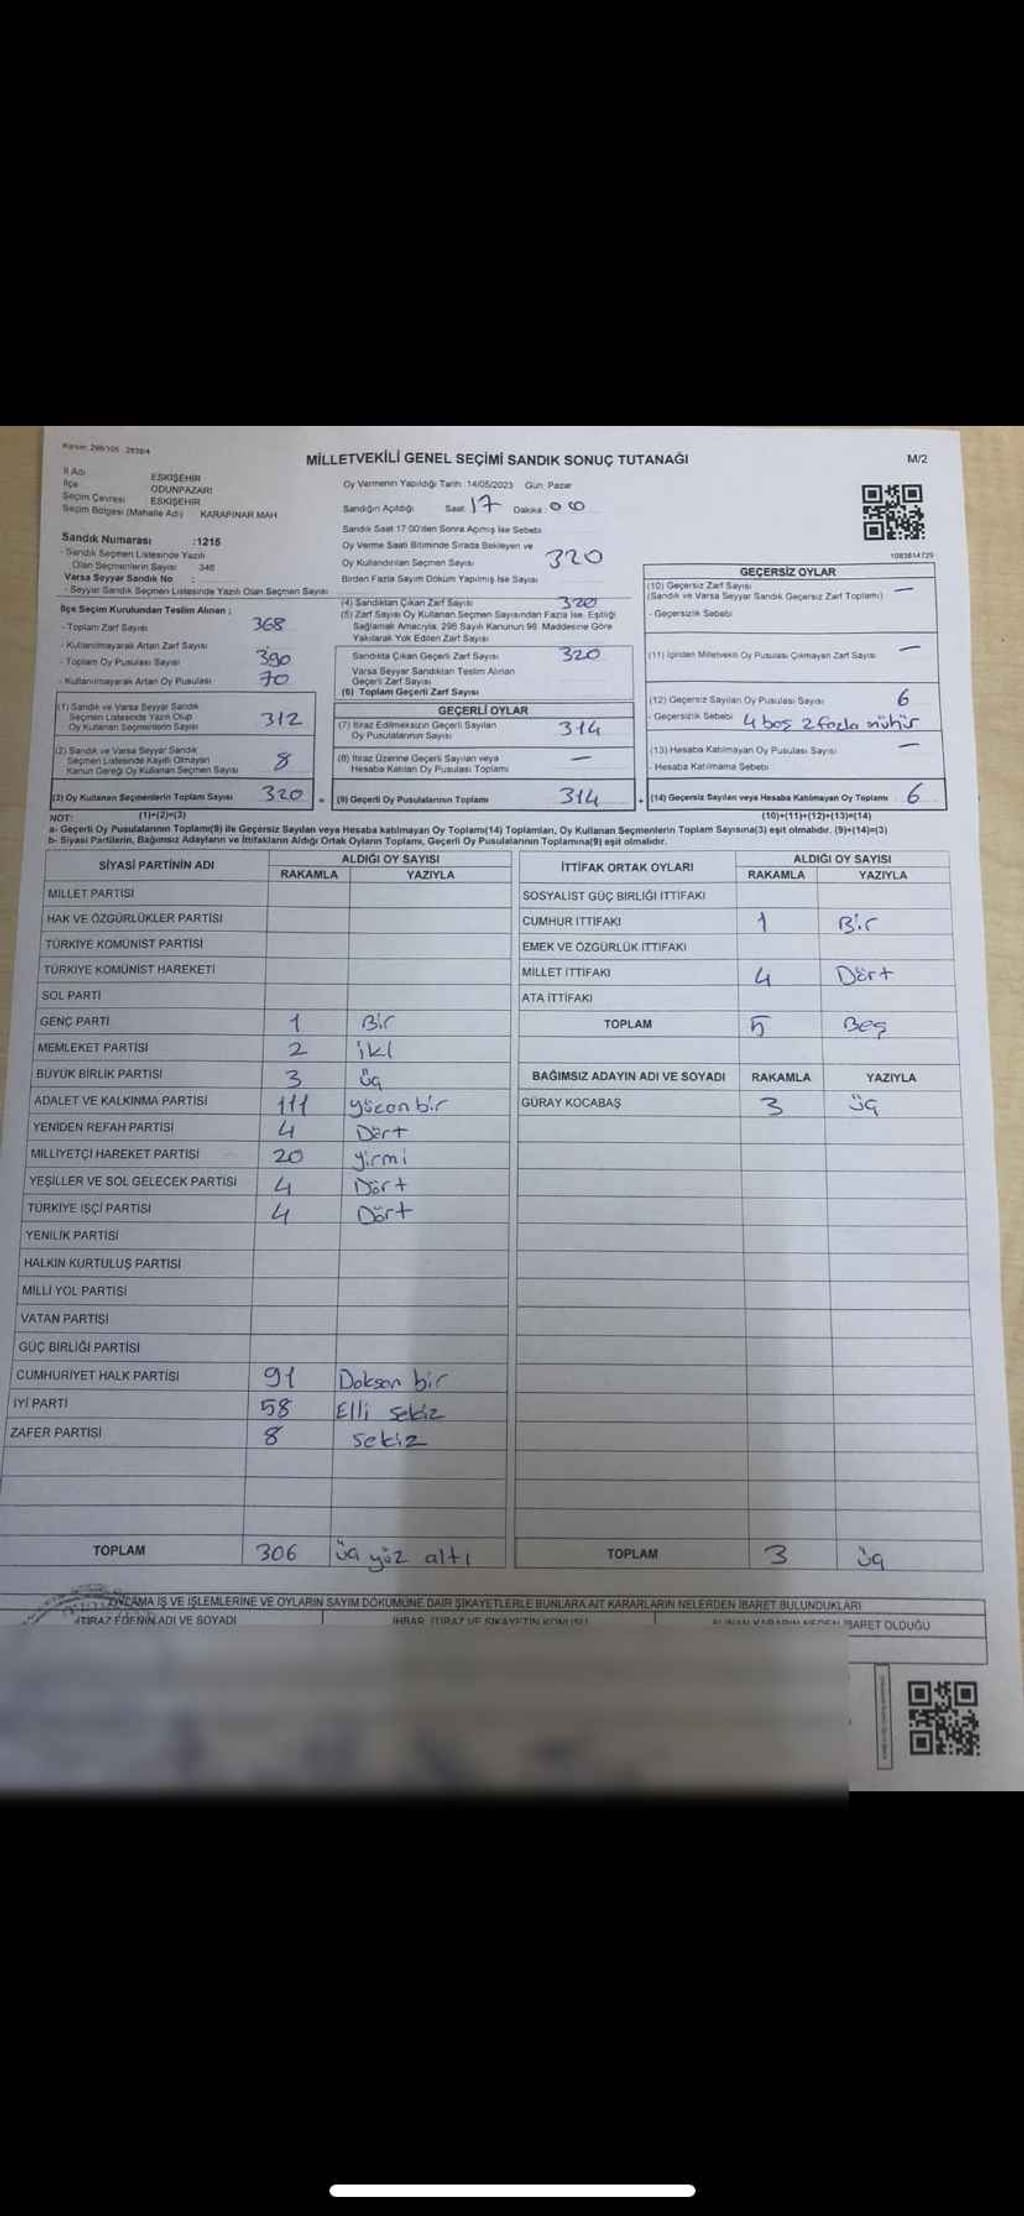 Kanun: 298/105 - 2839/4
MİLLETVEKİLİ GENEL SEÇİMİ SANDIK SONUÇ TUTANAĞI
M/2
İl Adı ESKİŞEHİR
İlçe ODUNPAZARI
Seçim Çevresi ESKİŞEHİR
Seçim Bölgesi (Mahalle Adı) KARAPINAR MAH
Sandık Numarası :1215
- Sandık Seçmen Listesinde Yazılı
Olan Seçmenlerin Sayısı 348
Varsa Seyyar Sandık No :
- Seyyar Sandık Seçmen Listesinde Yazılı Olan Seçmen Sayısı
Oy Vermenin Yapıldığı Tarih :14/05/2023 Gün: Pazar
Sandığın Açıldığı Saat: 17 Dakika: 00
Sandık Saat 17.00'den Sonra Açılmış İse Sebebi
Oy Verme Saati Bitiminde Sırada Bekleyen ve
Oy Kullandırılan Seçmen Sayısı 320
Birden Fazla Sayım Döküm Yapılmış İse Sayısı
1083614729
İlçe Seçim Kurulundan Teslim Alınan ;
- Toplam Zarf Sayısı 368
- Kullanılmayarak Artan Zarf Sayısı
- Toplam Oy Pusulası Sayısı 390
- Kullanılmayarak Artan Oy Pusulası 70
(1) Sandık ve Varsa Seyyar Sandık
Seçmen Listesinde Yazılı Olup
Oy Kullanan Seçmenlerin Sayısı 312
(2) Sandık ve Varsa Seyyar Sandık
Seçmen Listesinde Kayıtlı Olmayan
Kanun Gereği Oy Kullanan Seçmen Sayısı 8
(3) Oy Kullanan Seçmenlerin Toplam Sayısı 320 =
(4) Sandıktan Çıkan Zarf Sayısı 320
(5) Zarf Sayısı Oy Kullanan Seçmen Sayısından Fazla İse, Eşitliği
Sağlamak Amacıyla, 298 Sayılı Kanunun 98. Maddesine Göre
Yakılarak Yok Edilen Zarf Sayısı
Sandıkta Çıkan Geçerli Zarf Sayısı 320
Varsa Seyyar Sandıktan Teslim Alınan
Geçerli Zarf Sayısı
(6) Toplam Geçerli Zarf Sayısı
GEÇERLİ OYLAR
(7) İtiraz Edilmeksizin Geçerli Sayılan
Oy Pusulalarının Sayısı 314
(8) İtiraz Üzerine Geçerli Sayılan veya
Hesaba Katılan Oy Pusulası Toplamı —
(9) Geçerli Oy Pusulalarının Toplamı 314 +
GEÇERSİZ OYLAR
(10) Geçersiz Zarf Sayısı
(Sandık ve Varsa Seyyar Sandık Geçersiz Zarf Toplamı) —
- Geçersizlik Sebebi
(11) İçinden Milletvekili Oy Pusulası Çıkmayan Zarf Sayısı —
(12) Geçersiz Sayılan Oy Pusulası Sayısı 6
- Geçersizlik Sebebi 4 boş 2 fazla mühür
(13) Hesaba Katılmayan Oy Pusulası Sayısı —
- Hesaba Katılmama Sebebi
(14) Geçersiz Sayılan veya Hesaba Katılmayan Oy Toplamı 6
NOT: (1)+(2)=(3) (10)+(11)+(12)+(13)=(14)
a- Geçerli Oy Pusulalarının Toplamı(9) ile Geçersiz Sayılan veya Hesaba katılmayan Oy Toplamı(14) Toplamları, Oy Kullanan Seçmenlerin Toplam Sayısına(3) eşit olmalıdır. (9)+(14)=(3)
b- Siyasi Partilerin, Bağımsız Adayların ve İttifakların Aldığı Ortak Oyların Toplamı, Geçerli Oy Pusulalarının Toplamına(9) eşit olmalıdır.
SİYASİ PARTİNİN ADI ALDIĞI OY SAYISI
RAKAMLA YAZIYLA
MİLLET PARTİSİ
HAK VE ÖZGÜRLÜKLER PARTİSİ
TÜRKİYE KOMÜNİST PARTİSİ
TÜRKİYE KOMÜNİST HAREKETİ
SOL PARTİ
GENÇ PARTİ 1 Bir
MEMLEKET PARTİSİ 2 iki
BÜYÜK BİRLİK PARTİSİ 3 üç
ADALET VE KALKINMA PARTİSİ 111 yüzonbir
YENİDEN REFAH PARTİSİ 4 Dört
MİLLİYETÇİ HAREKET PARTİSİ 20 yirmi
YEŞİLLER VE SOL GELECEK PARTİSİ 4 Dört
TÜRKİYE İŞÇİ PARTİSİ 4 Dört
YENİLİK PARTİSİ
HALKIN KURTULUŞ PARTİSİ
MİLLİ YOL PARTİSİ
VATAN PARTİSİ
GÜÇ BİRLİĞİ PARTİSİ
CUMHURİYET HALK PARTİSİ 91 Doksan bir
İYİ PARTİ 58 Elli sekiz
ZAFER PARTİSİ 8 sekiz
TOPLAM 306 üç yüz altı
İTTİFAK ORTAK OYLARI ALDIĞI OY SAYISI
RAKAMLA YAZIYLA
SOSYALİST GÜÇ BİRLİĞİ İTTİFAKI
CUMHUR İTTİFAKI 1 Bir
EMEK VE ÖZGÜRLÜK İTTİFAKI
MİLLET İTTİFAKI 4 Dört
ATA İTTİFAKI
TOPLAM 5 Beş
BAĞIMSIZ ADAYIN ADI VE SOYADI RAKAMLA YAZIYLA
GÜRAY KOCABAŞ 3 üç
TOPLAM 3 üç
OYLAMA İŞ VE İŞLEMLERİNE VE OYLARIN SAYIM DÖKÜMÜNE DAİR ŞİKAYETLERLE BUNLARA AİT KARARLARIN NELERDEN İBARET BULUNDUKLARI
İTİRAZ EDENİN ADI VE SOYADI İHBAR, İTİRAZ VE ŞİKAYETİN KONUSU ALINAN KARARIN NEDEN İBARET OLDUĞU